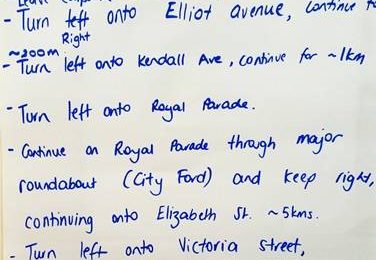 Leave
- Turn left onto Elliot avenue, continue
Right
~200m
- Turn left onto Kendall Ave, continue for ~1km
- Turn left onto Royal Parade.
- Continue on Royal Parade through major
roundabout (City Ford) and keep right,
continuing onto Elizabeth St. ~5kms.
- Turn left onto Victoria street,